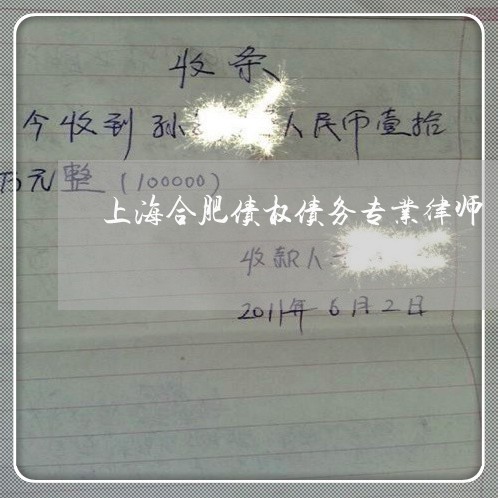 收条
今收到孙 人民币壹拾
万元整(100000)
上海合肥债权债务专业律师
收款人
2011年6月2日